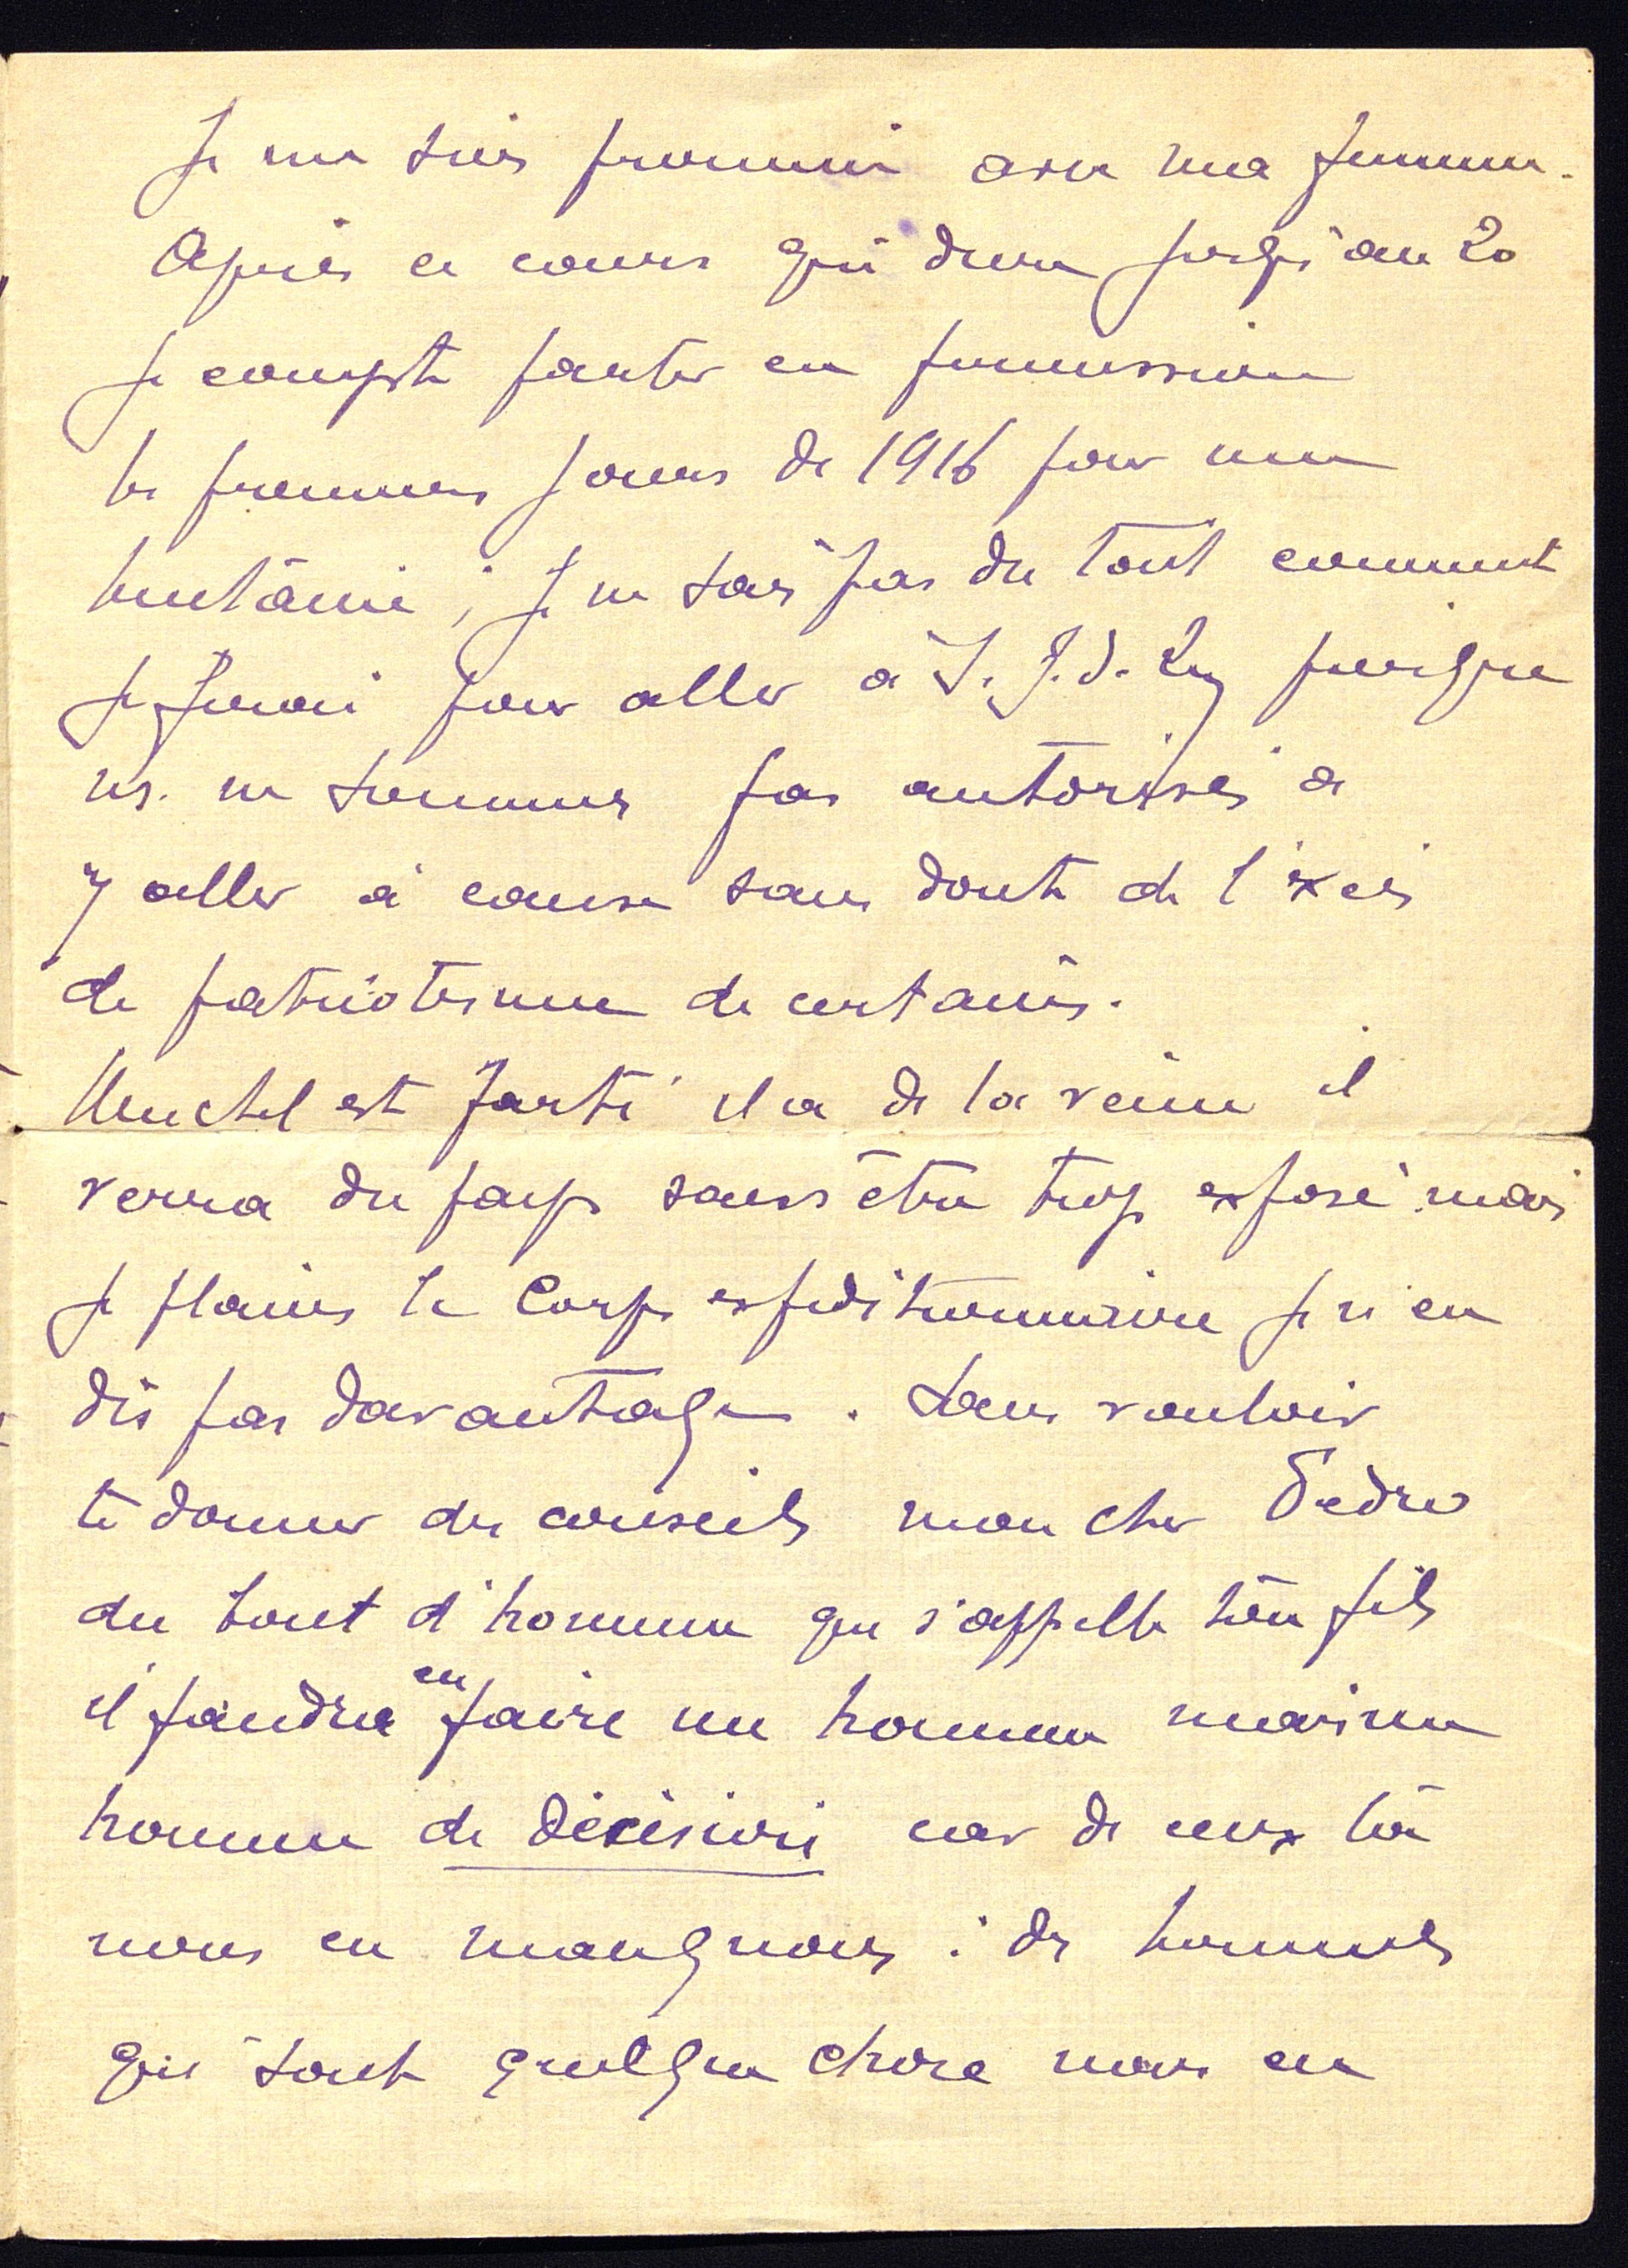 Je me suis promené avec ma femme.
Après ce cours qui dure jusqu'au 20
je compte partir en permission
les premiers jours de 1916 pour une
huitaine ; je ne sais pas du tout comment
je ferai pour aller à S. J. d. Luz puisque
ns. ne sommes pas autorisés à
y aller à cause sans doute de l'excès
de patriotisme de certains.
est parti il a de la veine il
verra du pays sans être trop exposé mais
je plains le Corps expeditionnaire je n'en
dis pas davantage. Sans vouloir
te donner des conseils mon cher Pedro
du bout d'homme qui s'appelle ton fils
il faudra en faire un homme mais un
homme de décision car de ceux là
nous en manquons : des hommes
qui sont quelque chose nous en